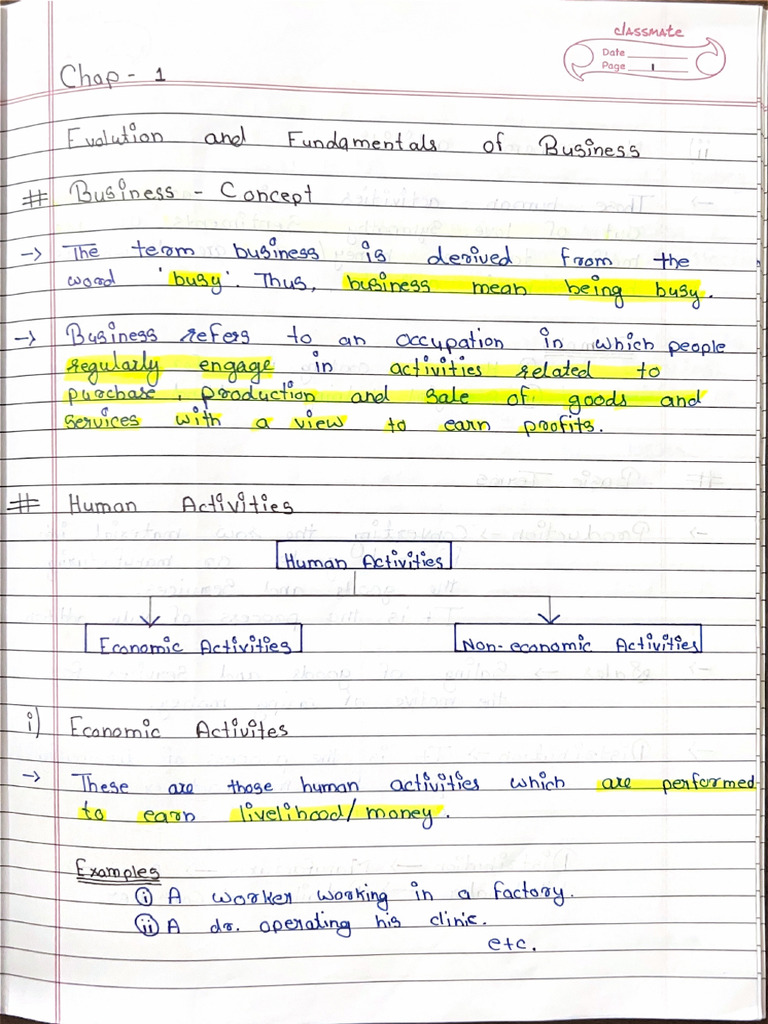 classmate
Date
Page 1
Chap - 1
Evolution and Fundamentals of Business
# Business - Concept
-> The term business is derived from the
word 'busy'. Thus, business mean being busy.
-> Business refers to an occupation in which people
regularly engage in activities related to
purchase, production and sale of goods and
services with a view to earn profits.
# Human Activities
Human Activities
Economic Activities
Non-economic Activities
i) Economic Activites
-> These are those human activities which are performed
to earn livelihood/money.
Examples
(i) A worker working in a factory.
(ii) A dr. operating his clinic.
etc.